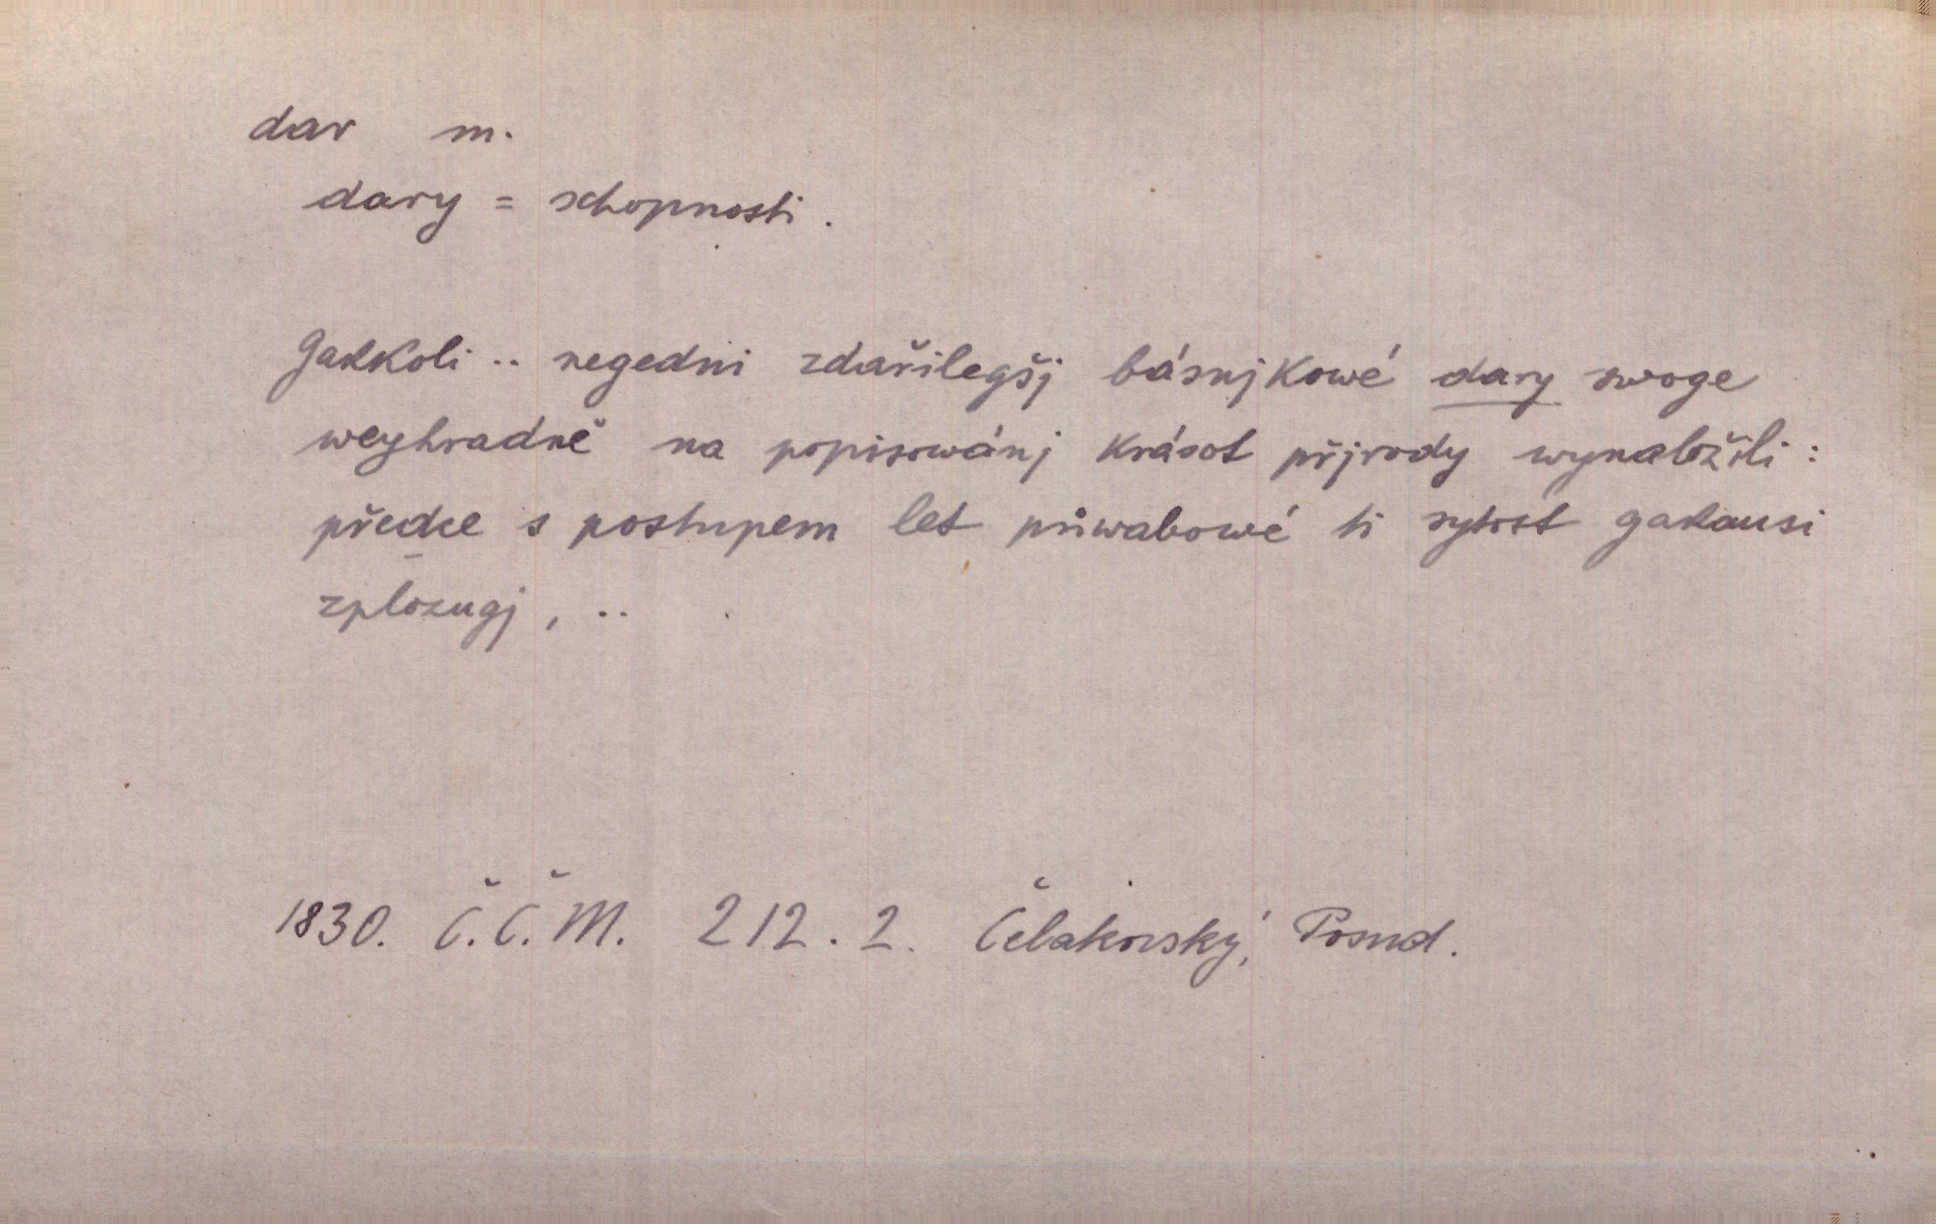 dar m.
dary = schopnosti.
Gakkoli .. negedni zdařilegšj básnjkowé dary swoge
weyhradně na popisowánj krásot přjrody wynaložili :
předce s postupem let půwabowé ti sytost gakausi
zplozugj, ..
1830. Č.Č.M. 212.2. Čelakovský, Posud.